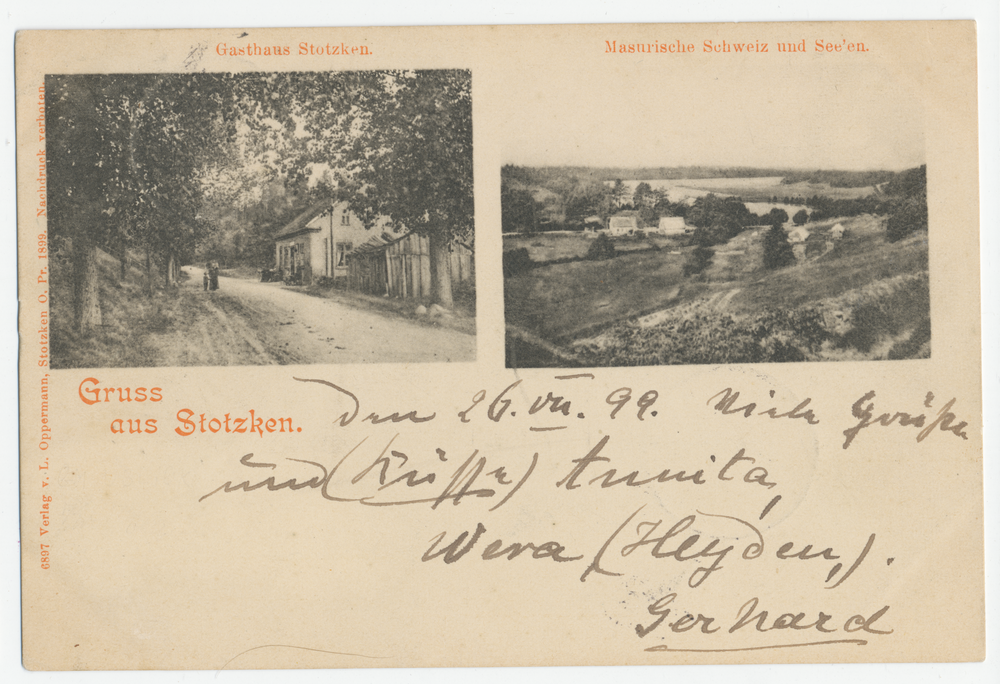 Gasthaus Stotzken.
Masurische Schweiz und See'en.
6897 Verlag v. L. Oppermann, Stotzken O. Pr. 1899. Nachdruck verboten.
Gruss
aus Stotzken.
Den 26. VII. 99. Viele Grüße
und (Küsse) Annita,
Wera (Heyden,).
Gerhard